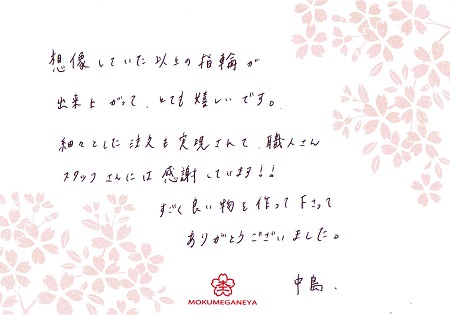 想像していた以上の指輪が
出来上がって、とても嬉しいです。
細々とした注文も実現されて、職人さん
スタッフさんには感謝しています!!
すごく良い物を作って下さって
ありがとうございました。
中島.
MOKUMEGANEYA